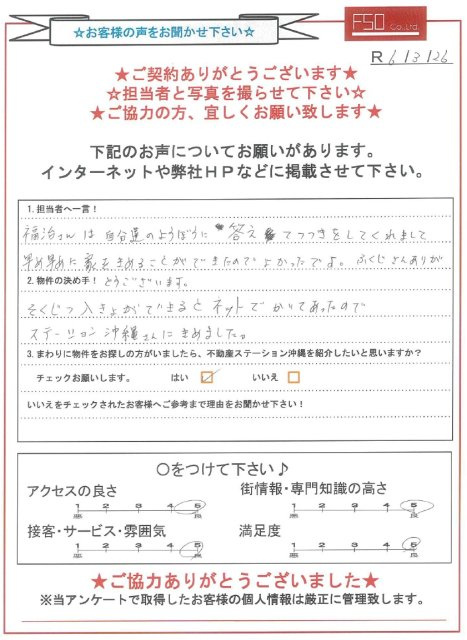 ☆お客様の声をお聞かせ下さい☆
FSO Co.,Ltd.
R 6/3/26
★ご契約ありがとうございます★
☆担当者と写真を撮らせて下さい☆
★ご協力の方、宜しくお願い致します★
下記のお声についてお願いがあります。
インターネットや弊社HPなどに掲載させて下さい。
1. 担当者へ一言！
福治さんは自分達のようぼうに答えてつづきをしてくれまして
早め早めに家をきめることができたのでよかったです。ふくじさんありが
2. 物件の決め手！ とうございます。
そくじつ入きょができるとネットでかいてあったので
ステーション沖縄さんにきめました。
3. まわりに物件をお探しの方がいましたら、不動産ステーション沖縄を紹介したいと思いますか？
チェックお願いします。 はい ☑ いいえ □
いいえをチェックされたお客様へご参考まで理由をお聞かせ下さい！
〇をつけて下さい♪
アクセスの良さ 街情報・専門知識の高さ
1 2 3 4 5 1 2 3 4 5
悪 良 悪 良
接客・サービス・雰囲気 満足度
1 2 3 4 5 1 2 3 4 5
悪 良 悪 良
★ご協力ありがとうございました★
※当アンケートで取得したお客様の個人情報は厳正に管理致します。